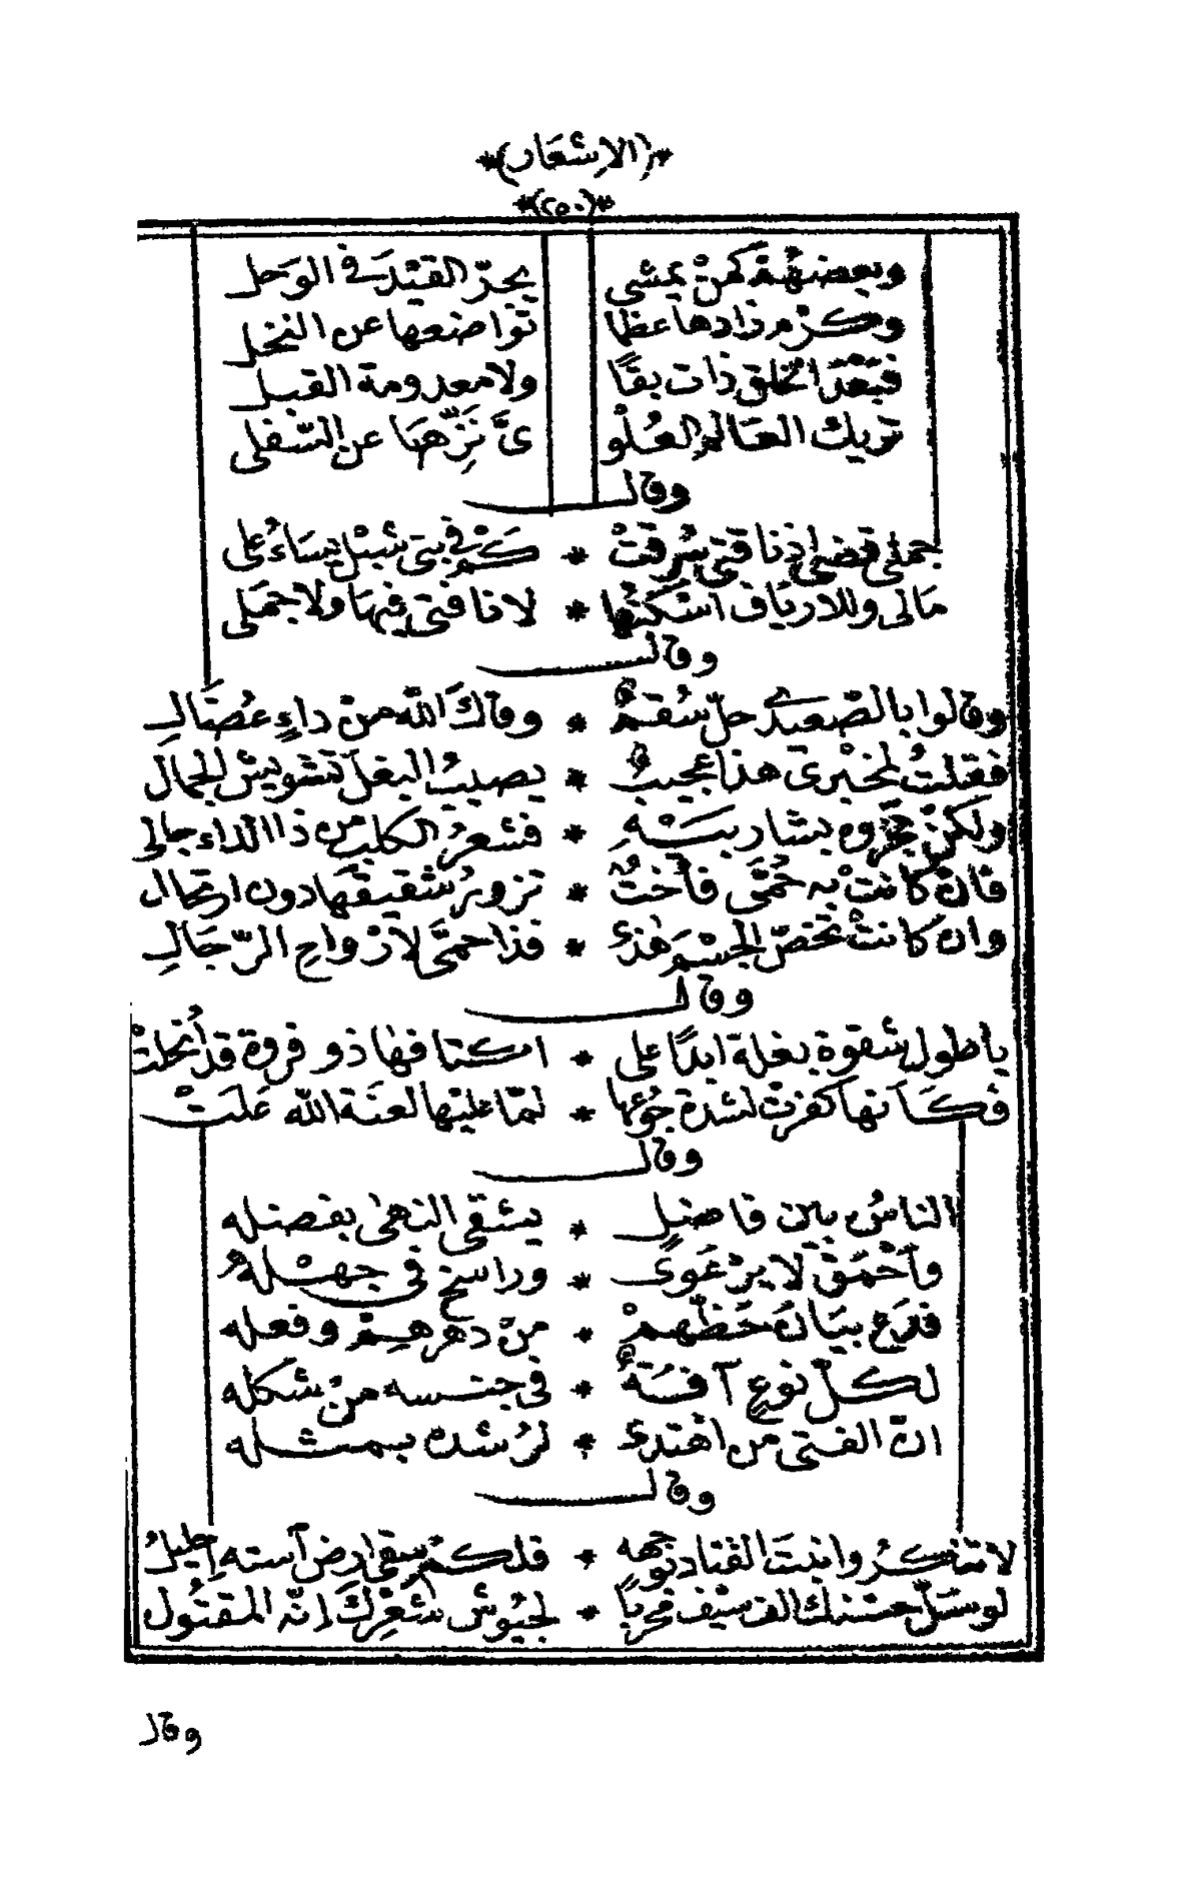 *(الاشعار)*
*(٢٥٠)*
وبعضهمُ كمنْ يمشي يجرّ القيْدَ في الوَحل
وكرْم زادها عظما تواضعها عن النخل
فبُعْدًا لخلق ذات بقًا ولا معدومة القبل
تريك العَالم العُلْو ىّ نَزّهها عن السّفلى
وقال
جملي قضى اذ ناقتي سُرقتْ * كمْ في بني شبْل يسَاءُ على
مَالى وللارياف اسْكنُها * لا ناقتى فيهَا ولا جمَلى
وقال
وقالوا بالصّعيدى حلّ سُقمٌ * وقاكَ اللّه منْ داءٍ عُضَالِ
فقلتُ لمخبْرى هذا عجيبٌ * يصيبُ البغلَ تشويشُ الجمال
ولكنْ بشاربيْهِ * فشعرُ الكلب من ذا الداء جالى
فانْ كانتْ به حُمّى فأختٌ * تزورُ شقيقهَا دون ارتحال
وان كانتْ تخصّ الجسْمَ هٰذى * فذا حمىَّ لارْواحِ الرّجَالِ
وقال
ياطول شقوة بغلة ابدًا على * اكتافها ذو فروة قد أنحلتْ
فكأنها كفرتْ لشدة جُوعها * لمّا عليْها لعنَة اللّه عَلتْ
وقال
الناسُ بين فاضلٍ * يشقى النهىٰ بفضله
وأحْمَقْ لا يرْعَوى * وراسخ في جهْلهُ
فدَع بيَان حَظّهمْ * منْ دهْرهمْ وفعله
لكلّ نوعٍ آفَةٌ * فى جنسه منْ شكله
انّ الفتى من اهْتدى * لرُشده بمثله
وقال
لا تنكرُوا نبتَ القتاد بوجهه * فلكمْ سقى ارض آسته إحليلُ
لو سَلّ حسْنك الف سيْف محربًا * لجيُوش شعْركَ انّه المقتُول
وقال